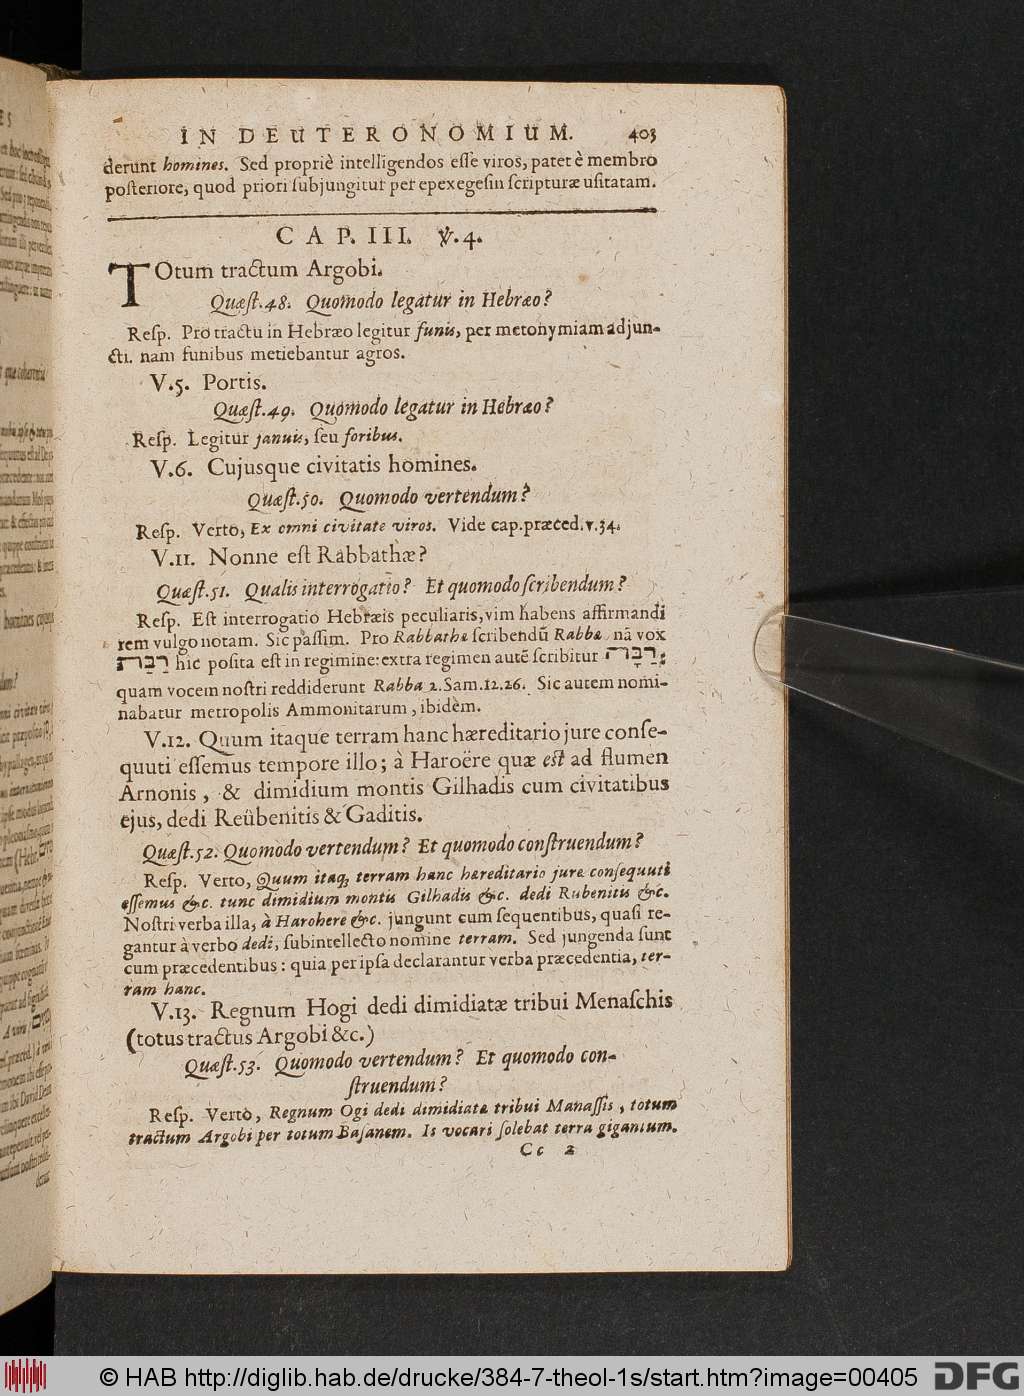 IN DEUTERONOMIUM. 403
derunt homines. Sed propriè intelligendos esse viros, patet è membro
posteriore, quod priori subjungitur per epexegesin scripturæ usitatam.
CAP. III. ꝟ.4.
TOtum tractum Argobi.
Quæst.48. Quomodo legatur in Hebræo?
Resp. Pro tractu in Hebræo legitur funis, per metonymiam adjun-
cti. nam funibus metiebantur agros.
V.5. Portis.
Quæst.49. Quomodo legatur in Hebræo?
Resp. Legitur januis, seu foribus.
V.6. Cujusque civitatis homines.
Quæst.50. Quomodo vertendum?
Resp. Verto, Ex omni civitate viros. Vide cap.præced.v.34.
V.11. Nonne est Rabbathæ?
Quæst.51. Qualis interrogatio? Et quomodo scribendum?
Resp. Est interrogatio Hebræis peculiaris, vim habens affirmandi
rem vulgo notam. Sic passim. Pro Rabbathæ scribendũ Rabbæ, nã vox
רַבַּת hic posita est in regimine: extra regimen autẽ scribitur רַבָּה;
quam vocem nostri reddiderunt Rabba 2. Sam.12.26. Sic autem nomi-
nabatur metropolis Ammonitarum, ibidem.
V.12. Quum itaque terram hanc hæreditario jure conse-
quuti essemus tempore illo; à Haroëre quæ est ad flumen
Arnonis, & dimidium montis Gilhadis cum civitatibus
ejus, dedi Reübenitis & Gaditis.
Quæst.52. Quomodo vertendum? Et quomodo construendum?
Resp. Verto, Quum itaq; terram hanc hæreditario jure consequuti
essemus &c. tunc dimidium montis Gilhadis &c. dedi Rubenitis &c.
Nostri verba illa, à Harohere &c. jungunt cum sequentibus, quasi re-
gantur à verbo dedi, subintellecto nomine terram. Sed jungenda sunt
cum præcedentibus: quia per ipsa declarantur verba præcedentia, ter-
ram hanc.
V.13. Regnum Hogi dedi dimidiatæ tribui Menaschis
(totus tractus Argobi &c.)
Quæst.53. Quomodo vertendum? Et quomodo con-
struendum?
Resp. Verto, Regnum Ogi dedi dimidiatæ tribui Manassis, totum
tractum Argobi per totum Basanem. Is vocari solebat terra gigantum.
Cc 2
© HAB http://diglib.hab.de/drucke/384-7-theol-1s/start.htm?image=00405 DFG